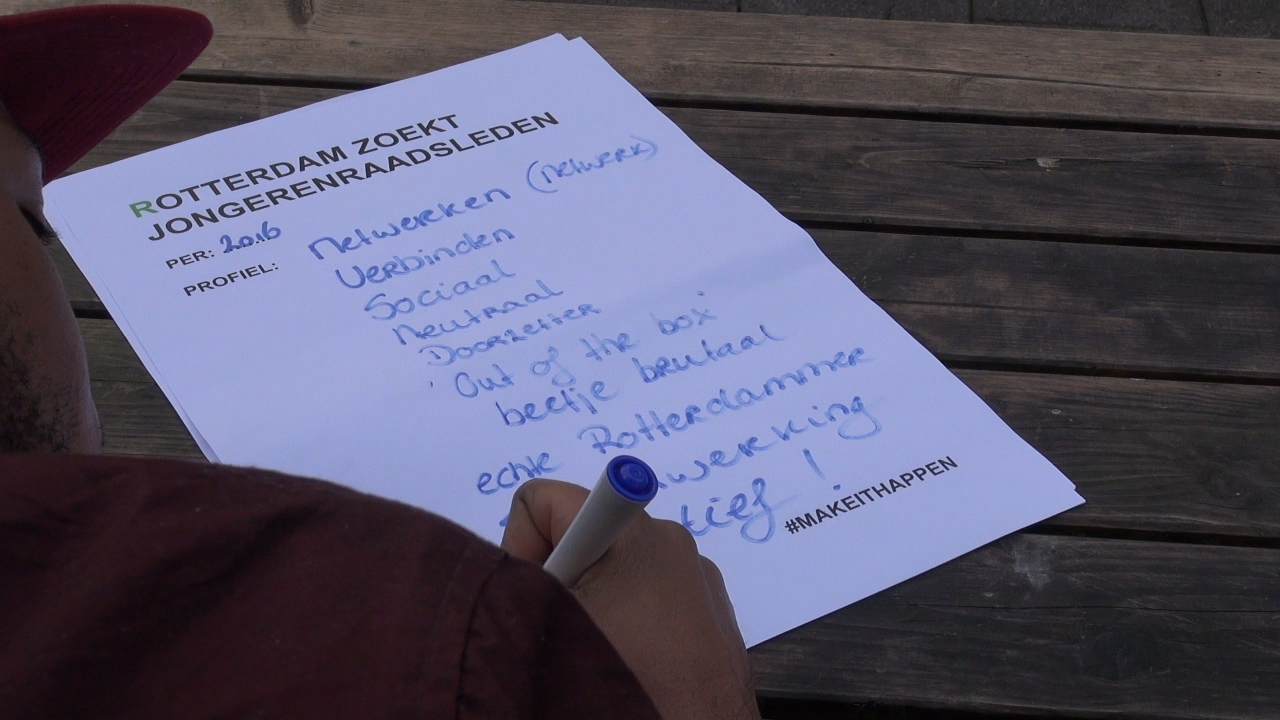 ROTTERDAM ZOEKT
JONGERENRAADSLEDEN
PER: 2016
PROFIEL:
Netwerken (netwerk)
Verbinden
Sociaal
Neutraal
Doorzetter
'Out of the box'
beetje brutaal
echte Rotterdammer
#MAKEITHAPPEN